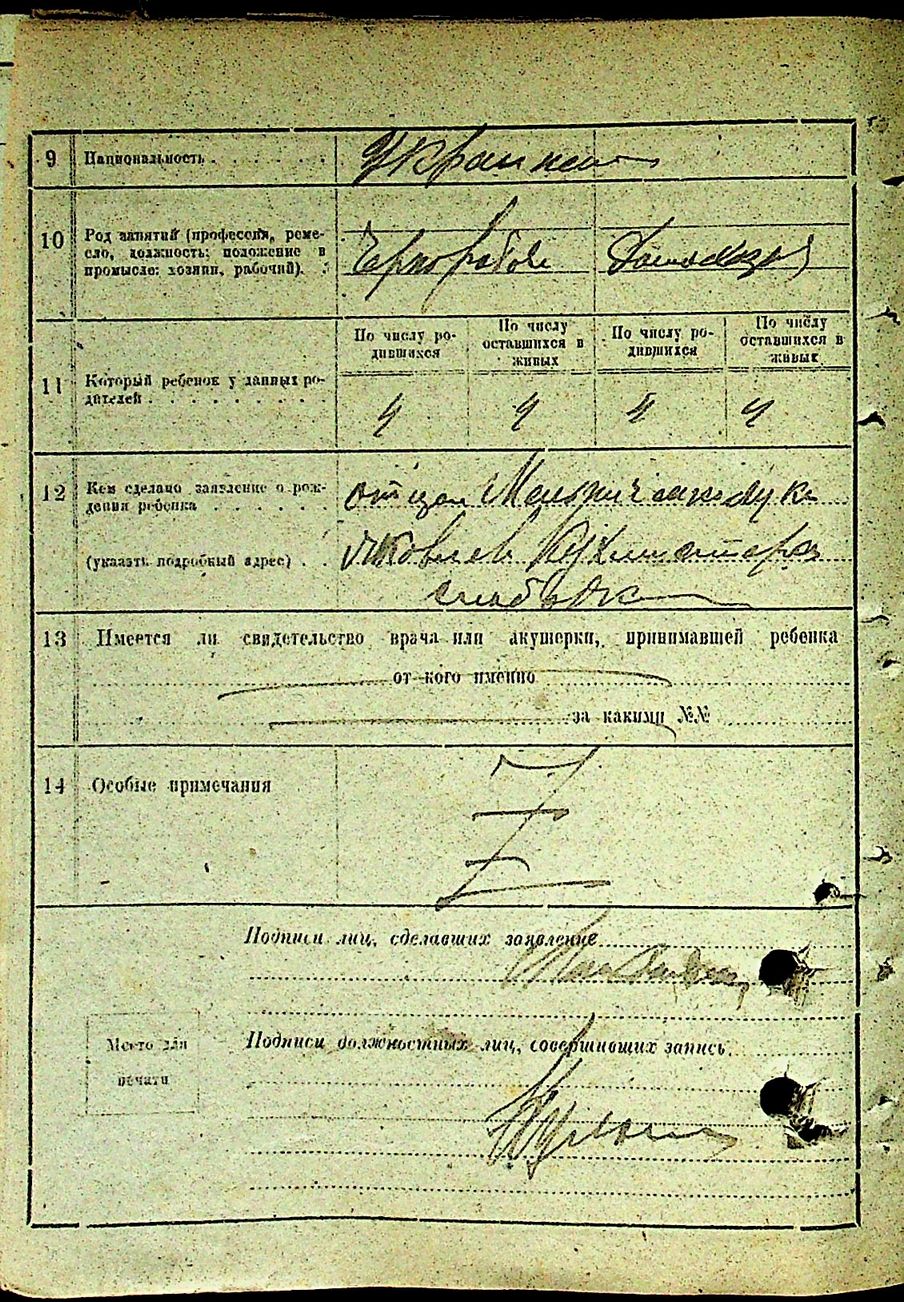 9 Национальность . . . . . . . Украинец
10 Род занятий (профессия, реме-
сло, должность: положение в
промысле: хозяин, рабочий). . Чернорабоч Домохоз
11 Который ребенок у данных ро-
дителей . . . . . . . .
По числу ро-
дившихся
По числу
оставшихся в
живых
По числу ро-
дившихся
По числу
оставшихся в
живых
4 4 4 4
12 Кем сделано заявление о рож-
дения ребенка . . . . . . отцом
(указать подробный адрес) . .
13 Имеется ли свидетельство врача или акушерки, принимавшей ребенка
от кого именно
за какими №№
14 Особые примечания
Подписи лиц, сделавших заявление
Подписи должностных лиц, совершивших запись.
Место для
печати